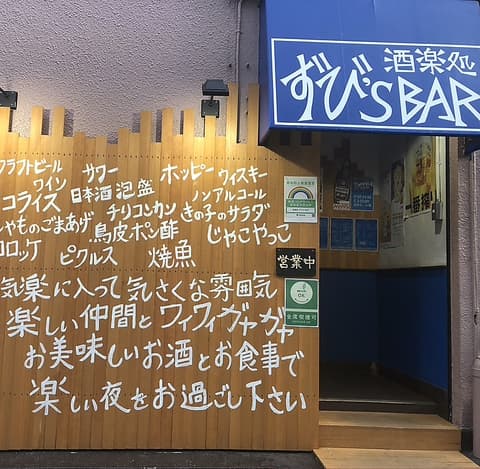 酒楽処
ずび'S BAR
クラフトビール サワー ホッピー ウィスキー
ワイン 日本酒 泡盛 ノンアルコール
コライス チリコンカン きの子のサラダ
しゃものごまあげ 鳥皮ポン酢 じゃこやっこ
コロッケ ピクルス 焼魚
気楽に入って気さくな雰囲気
楽しい仲間とワイワイガヤガヤ
お美味しいお酒とお食事で
楽しい夜をお過ごし下さい
営業中
OK
全席喫煙可
一番搾り